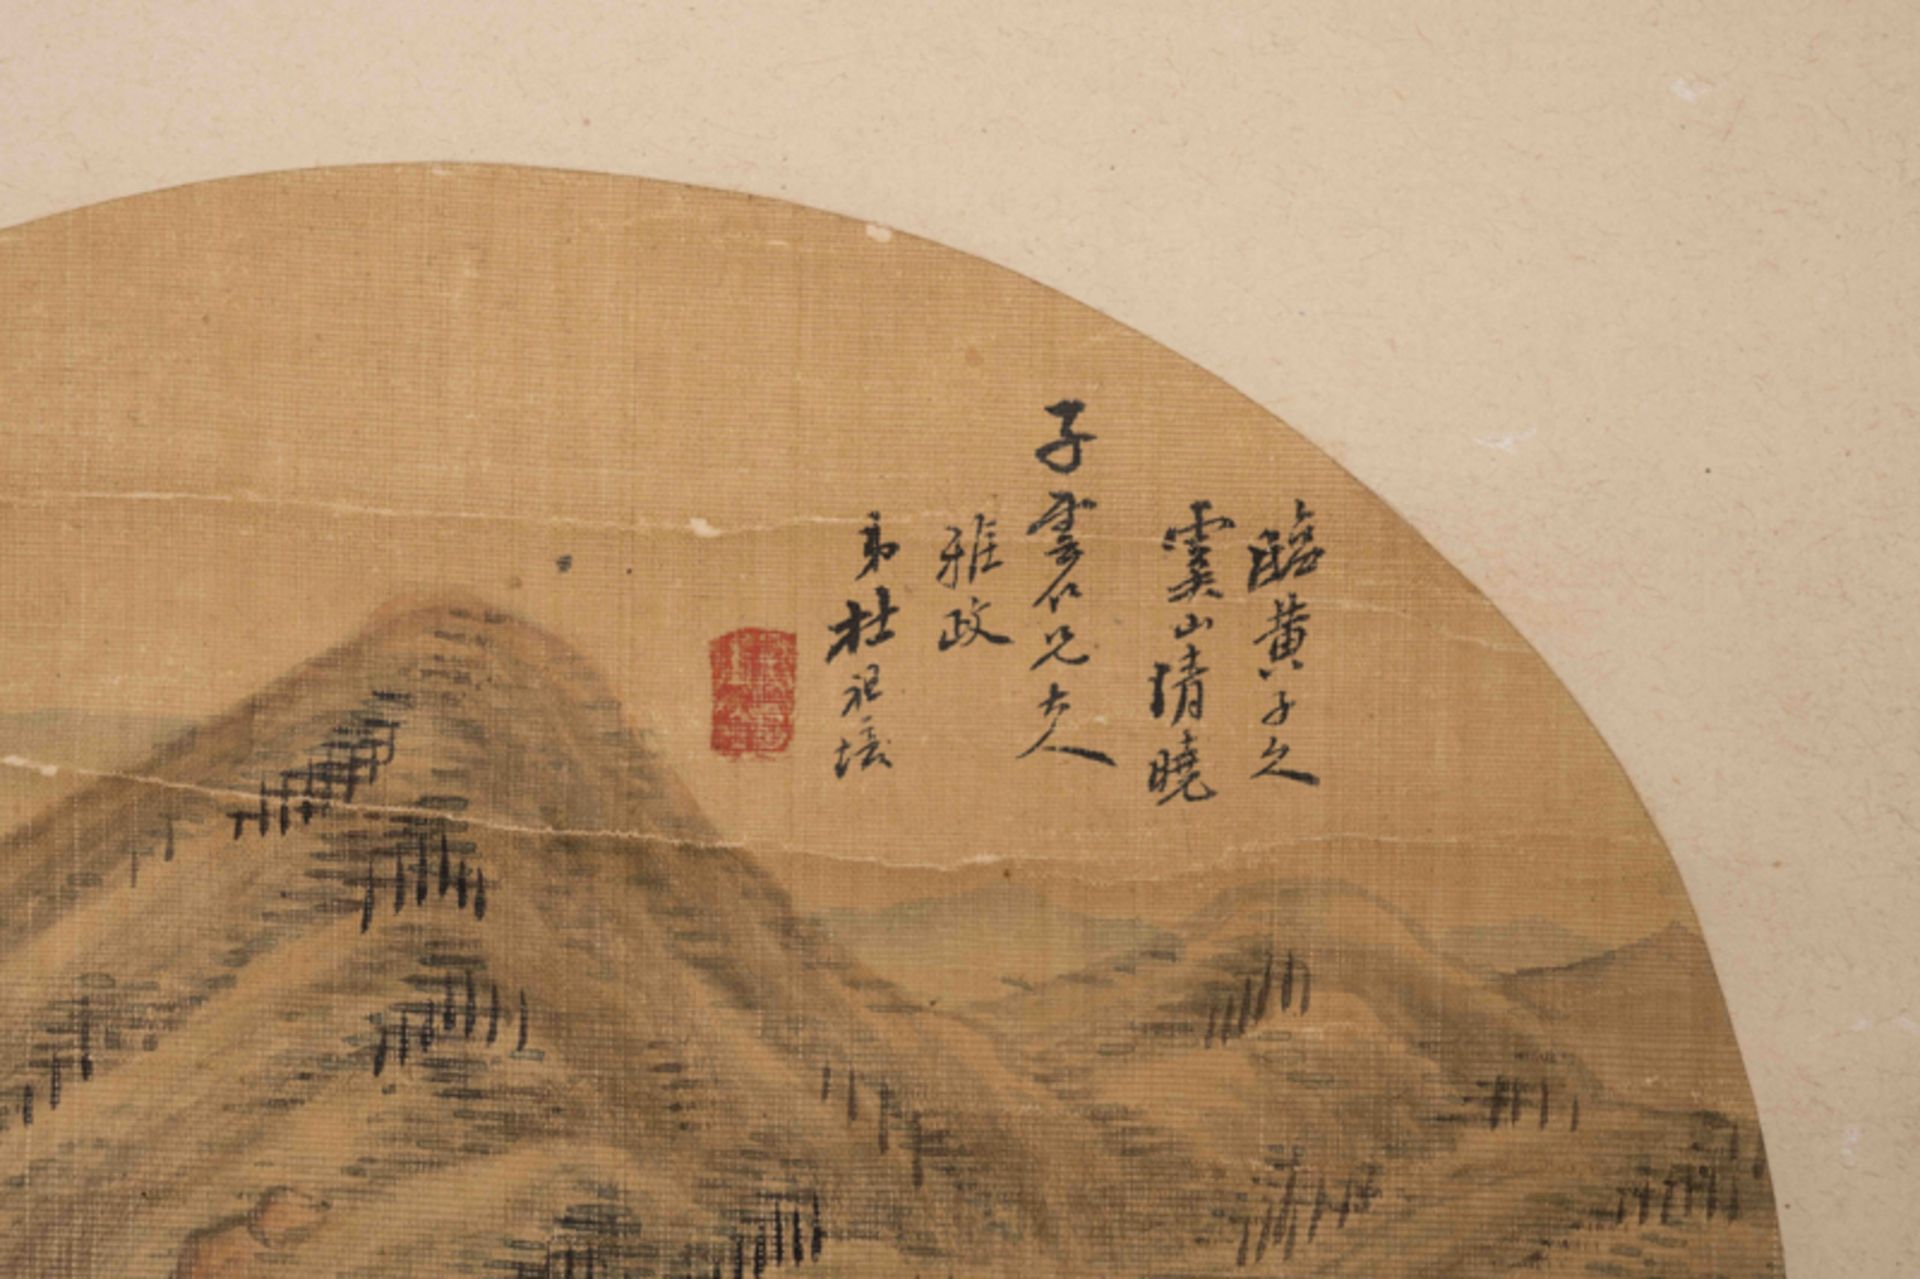 臨黃子久
雲山清曉
子雲仁兄大人
雅政
弟杜